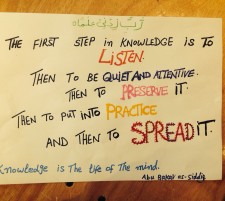 رَّبِّ زِدْنِي عِلْمًا
THE FIRST STEP IN KNOWLEDGE IS TO
LISTEN.
THEN TO BE QUIET AND ATTENTIVE.
THEN TO PRESERVE IT.
THEN TO PUT INTO PRACTICE
AND THEN TO SPREAD IT.
Knowledge is The life of The mind.
Abu Bakr as-Siddiq